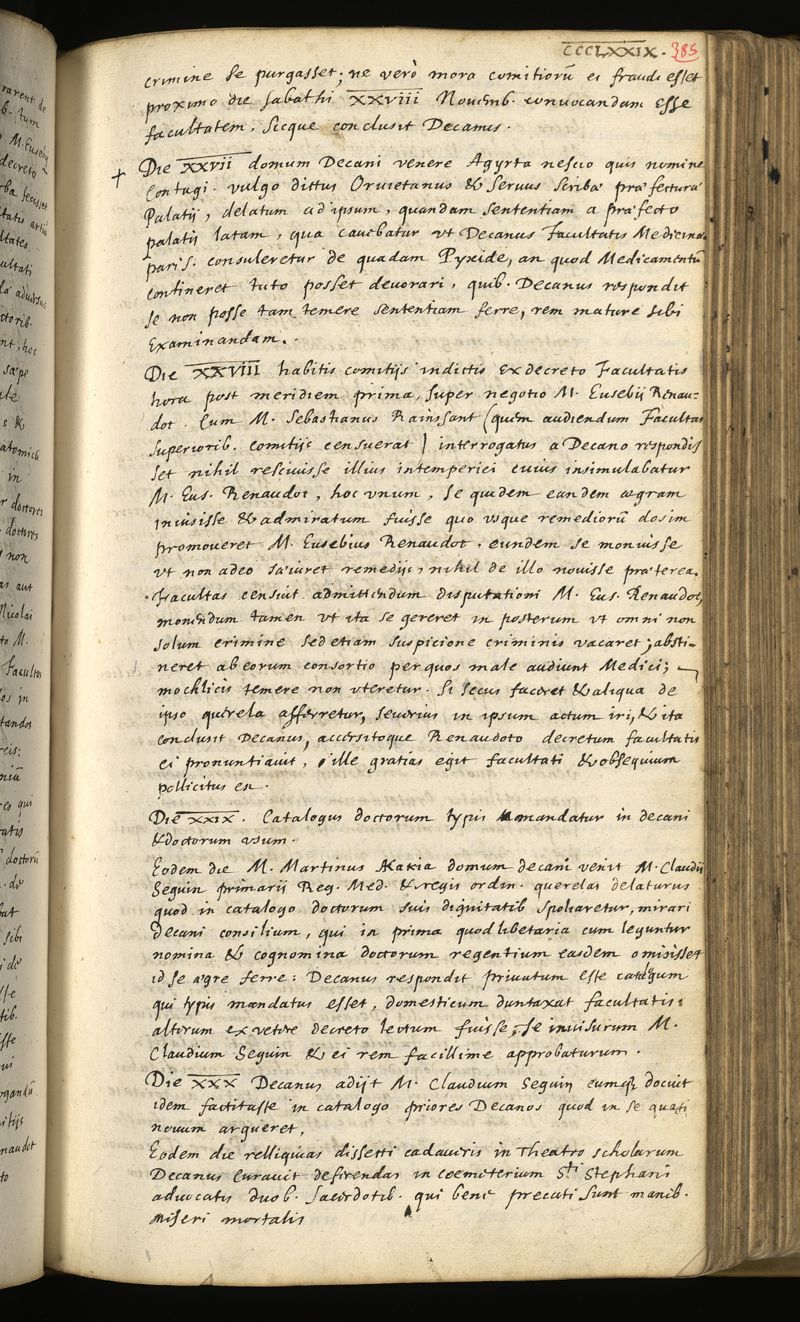 CCCLXXIX. 385
crimine se purgasset; ne verò mora comitiorū ei fraudi esset
proximo die sabathi XXVIII Nouemb. conuocandam esse
facultatem, sicque conclusit Decanus.
† Die XXVII domum Decani venere Agyrta nescio quis nomine
Contugi. vulgo dictus Oruietanus & seruus scriba præfecturæ
Palatij, delatum ad ipsum, quandam sententiam a præfecto
palatij latam, qua cauebatur vt Decanus Facultatis Medicinæ
paris. consuleretur de quadam Pyxide, an quod Medicamentū
contineret tuto posset deuorari, quib. Decanus respondit
se non posse tam temere sententiam ferre, rem mature sibi
Examinandam.
Die XXVIII habitis comitijs indictis ex decreto Facultatis
hora post meridiem prima, super negotio M. Eusebij Renau-
dot. Cum M. Sebastianus Rainssant (quem audiendum Facultas
superiorib. comitijs censuerat) interrogatus a Decano respondis
set nihil resciuisse illius intemperiei cuius insimulabatur
M. Eus. Renaudot, hoc vnum, se quidem eandem ægram
inuisisse & admiratum fuisse quo vsque remediorū dosim
promoueret M. Eusebius Renaudot, eundem se monuisse
vt non adeo sæuiret remedijs, nihil de illo nouisse præterea.
Facultas censuit admittendum disputationi M. Eus. Renaudot,
monendum tamen vt ita se gereret in posterum vt omni non
solum crimine sed etiam suspicione criminis vacaret, absti-
neret ab eorum consortio per quos male audiunt Medici;
mochlicis temere non vteretur. Si secus faceret & aliqua de
ipso querela afferretur, seuerius in ipsum actum iri, & ita
conclusit Decanus, accersitoque Renaudoto decretum facultatis
ei pronuntiauit, ille gratias egit facultati & obsequium
pollicitus est.
Die XXIX. Catalogus doctorum typis mandatur in decani
& doctorum vsum.
Eodem die M. Martinus Akakia domum decani venit M. Claudij
Seguin primarij Reg. Med. & regis ordin. querelas delaturus
quod in catalogo doctorum suis dignitatib. spoliaretur, mirari
Decani consilium, qui in prima quodlibetaria cum leguntur
nomina & cognomina doctorum regentium easdem omisisset
id se ægre ferre: Decanus respondit priuatum esse catalogum
qui typis mandatus esset, domesticum duntaxat facultatis;
alterum ex vetere decreto lectum fuisse, se inuisurum M.
Claudium Seguin & ei rem facillime approbaturum.
Die XXX Decanus adijt M. Claudium Seguin eumq; docuit
idem factitasse in catalogo priores Decanos quod in se quasi
nouum argueret,
Eodem die relliquias dissecti cadaueris in Theatro scholarum
Decanus curauit deferendas in coemiterium Sti Stephani
aduocatis duob. sacerdotib. qui bene precati sunt manib.
miseri mortalis